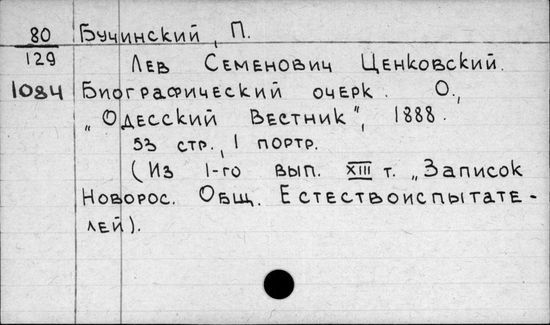 80 Бучинский, П.
129 Лев Семенович Ценковский.
1084 Биографический очерк. О.,
„Одесский Вестник", 1888.
53 стр., 1 портр.
(Из 1-го вып. XIII т. „Записок
Новорос. Общ. Естествоиспытате-
лей).